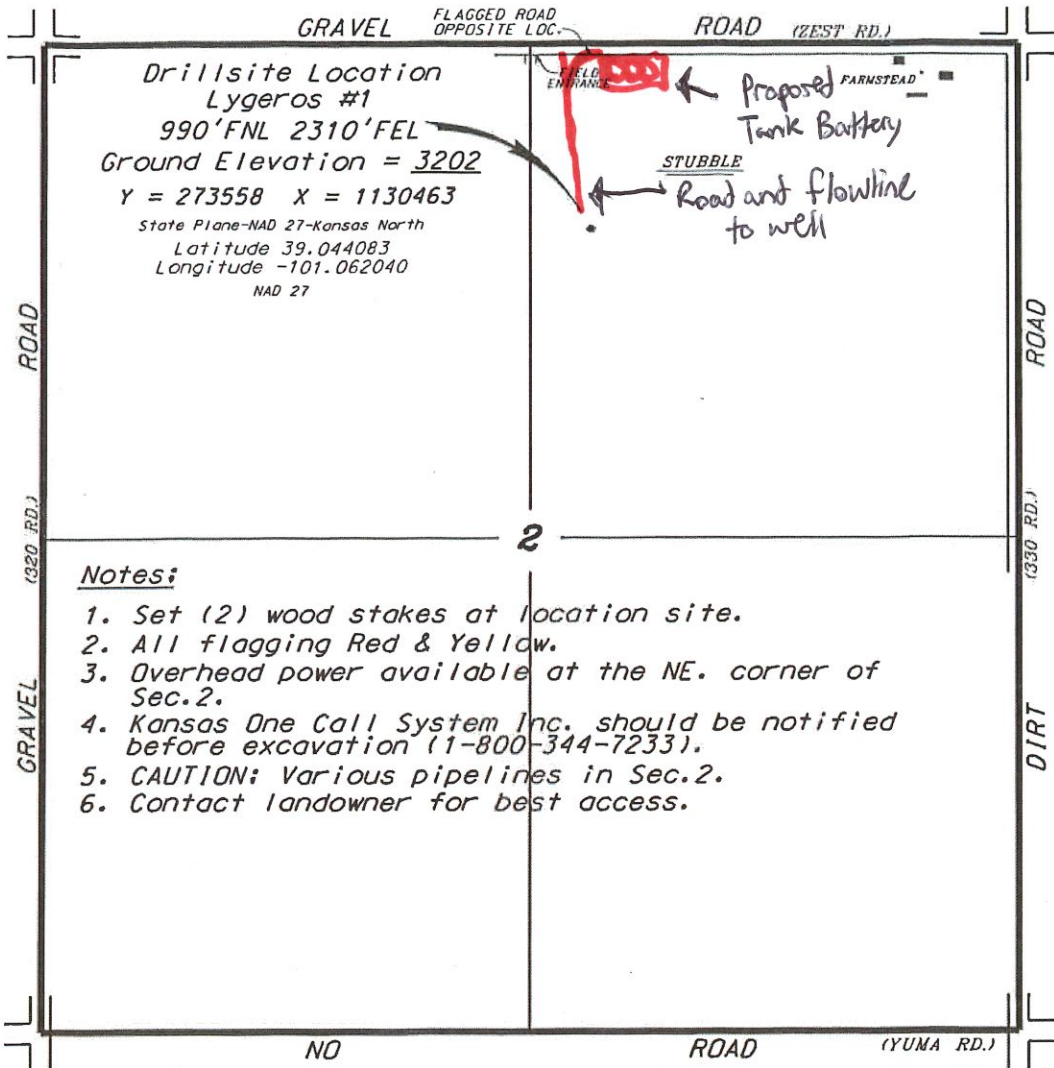 GRAVEL
FLAGGED ROAD
OPPOSITE LOC.
ROAD
(ZEST RD.)
Drillsite Location
Lygeros #1
990'FNL 2310'FEL
Ground Elevation = 3202
Y = 273558 X = 1130463
State Plane-NAD 27-Kansas North
Latitude 39.044083
Longitude -101.062040
NAD 27
FIELD
ENTRANCE
Proposed
Tank Battery
FARMSTEAD
STUBBLE
Road and flowline
to well
ROAD
(320 RD.)
GRAVEL
ROAD
(330 RD.)
DIRT
2
Notes:
1. Set (2) wood stakes at location site.
2. All flagging Red & Yellow.
3. Overhead power available at the NE. corner of
Sec.2.
4. Kansas One Call System Inc. should be notified
before excavation (1-800-344-7233).
5. CAUTION: Various pipelines in Sec.2.
6. Contact landowner for best access.
NO
ROAD
(YUMA RD.)